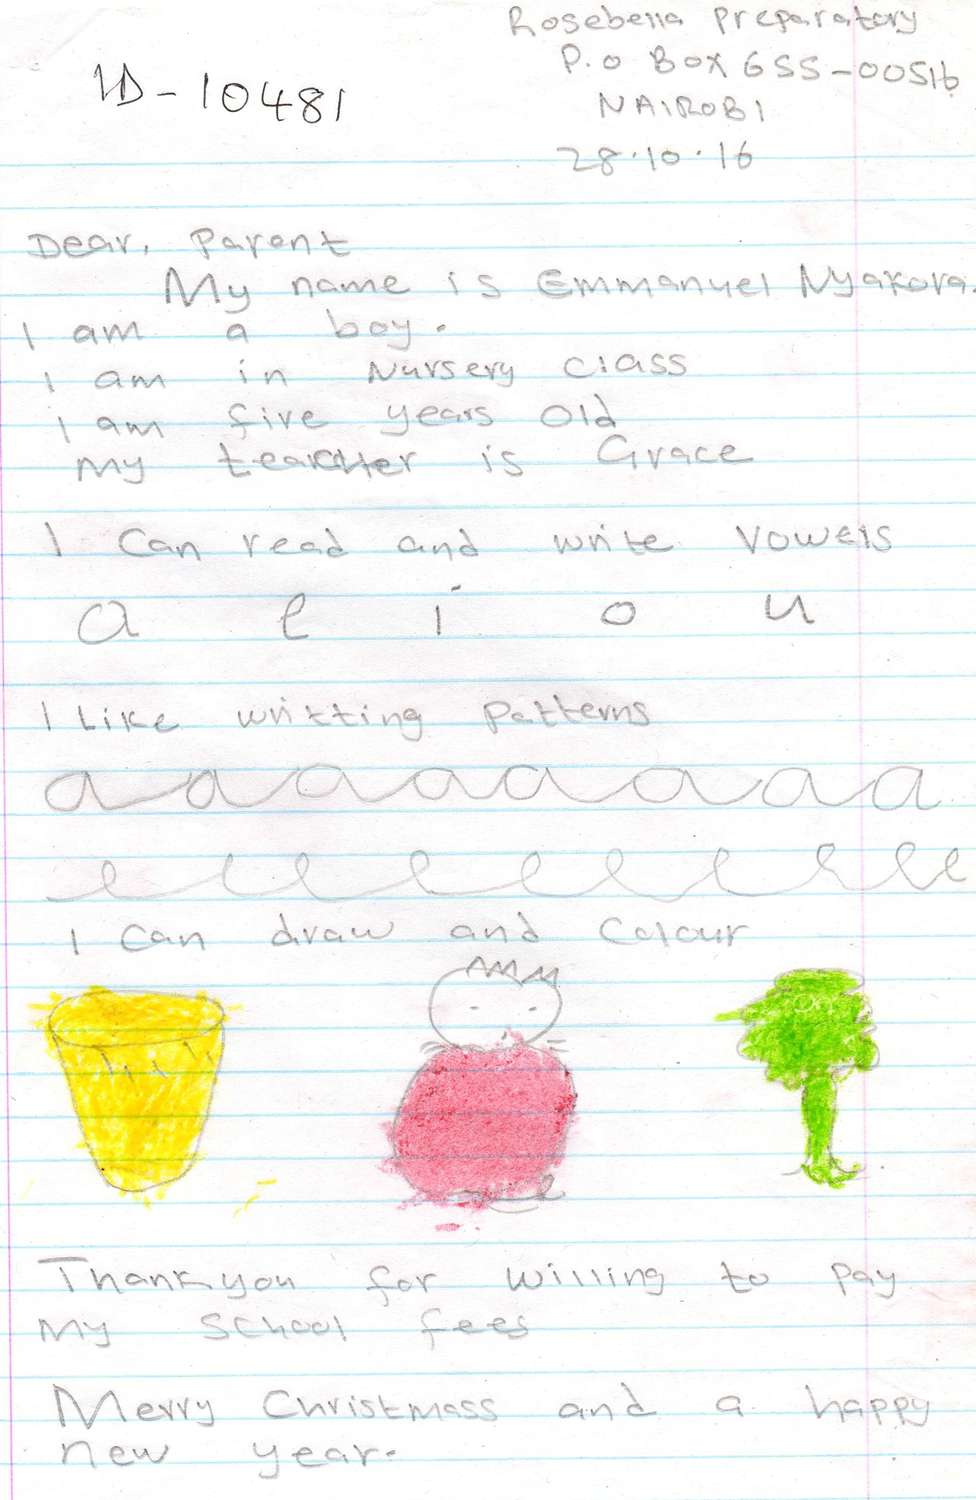 Rosebella Preparatory
ID-10481
P.o Box 655-00516
NAIROBI
28.10.16
Dear, Parent
My name is Emmanuel Nyakora.
I am a boy.
I am in Nursery class
I am five years old
My teacher is Grace
I can read and write vowels
a e i o u
I Like writting patterns
a a a a a a a a
e e e e e e e e e e
I can draw and colour
Thankyou for willing to pay
my school fees
Merry Christmass and a happy
new year.